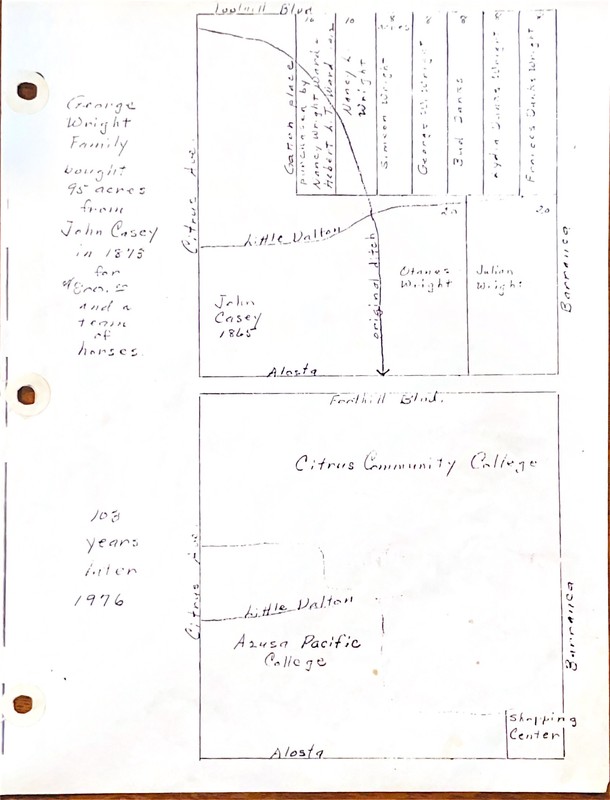 Foothill Blvd
George
Wright
Family
bought
95 acres
from
John Casey
in 1873
for
and a
team
of
horses.
Citrus Ave.
Gatun place
purchased by
Nancy Wright Ward -
Hebert L. T. Ward
10
Nancy L.
Wright
8
Simeon Wright
8
George W. Wright
8
Bud Jones
8
Lydia Danks Wright
8
Frances Danks Wright
Little Dalton
20
20
original ditch
Otanes
Wright
Julian
Wright
Barranca
John
Casey
1865
Alosta
Foothill Blvd.
Citrus Community College
103
years
later
1976
Citrus Ave
Little Dalton
Azusa Pacific
College
Barranca
Shopping
Center
Alosta